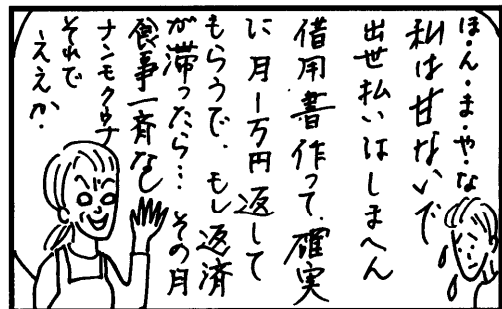 ほ・ん・ま・や・な
私は甘ないで
出世払いはしまへん
借用書作って、確実
に月1万円返して
もらうで、もし返済
が滞ったら… その月
食事一斉なし
ナンモクウナ
それで
ええか・